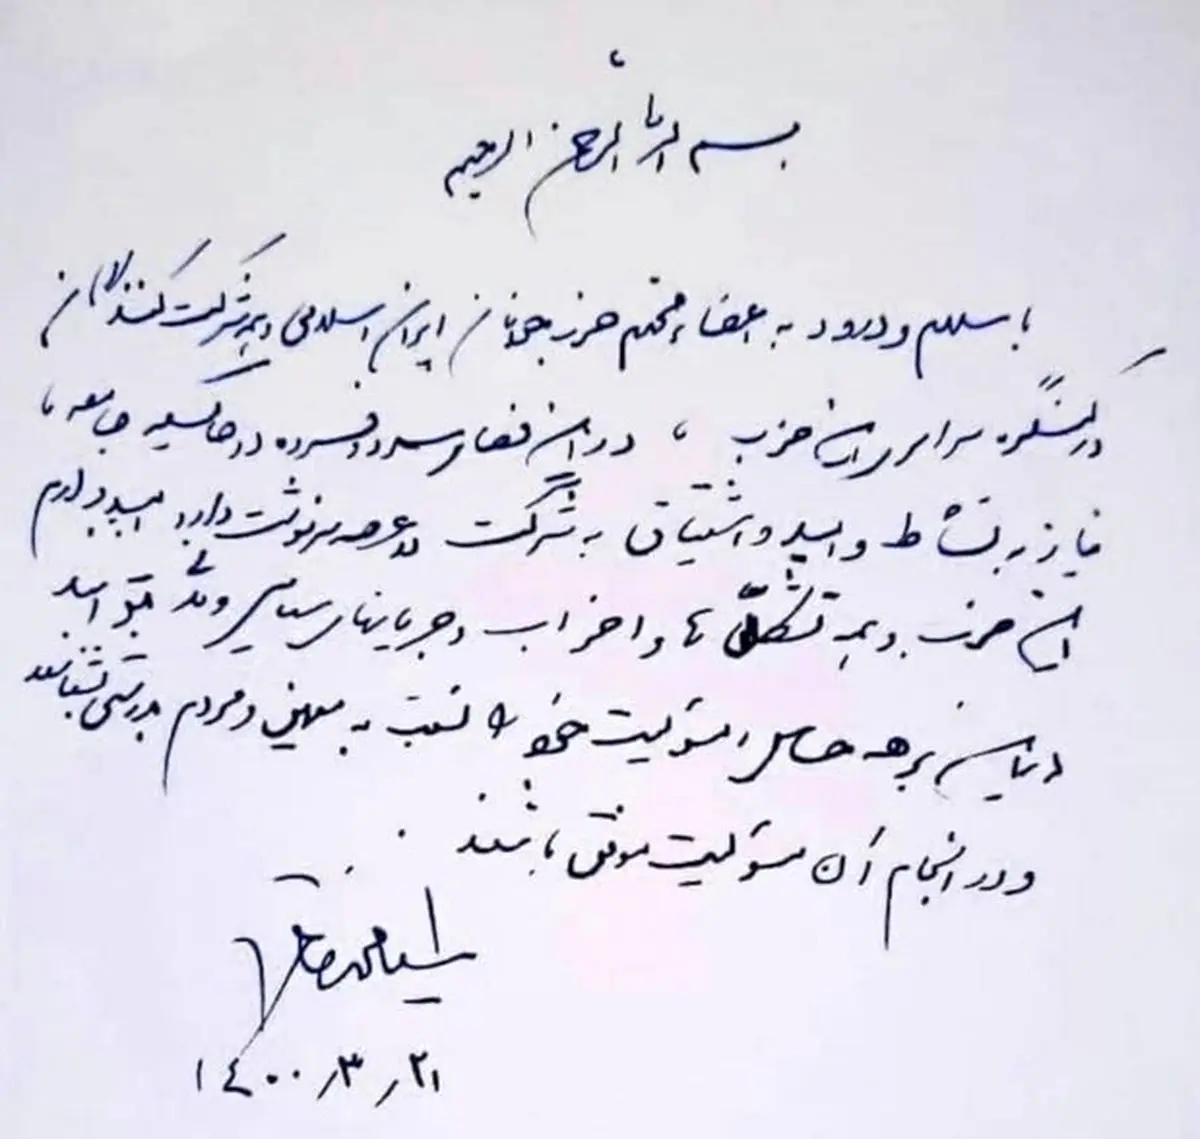 بسم الله الرحمن الرحیم
با سلام و درود به اعضاء محترم حزب جوانان ایران اسلامی و همه شرکت کنندگان
در کنگره سراسری این حزب، در این فضای سرد و افسرده در حالیکه جامعه ما
نیاز به نشاط و امید و اشتیاق به شرکت در عرصه سرنوشت دارد امیدوارم
این حزب و همه تشکل ها و احزاب و جریانهای سیاسی و مدنی بتوانند
در این برهه حساس مسئولیت خود را نسبت به میهن و مردم بدرستی بشناسند
و در انجام آن مسئولیت موفق باشند.
سید محمد خاتمی
۱۴۰۰/۳/۲۱